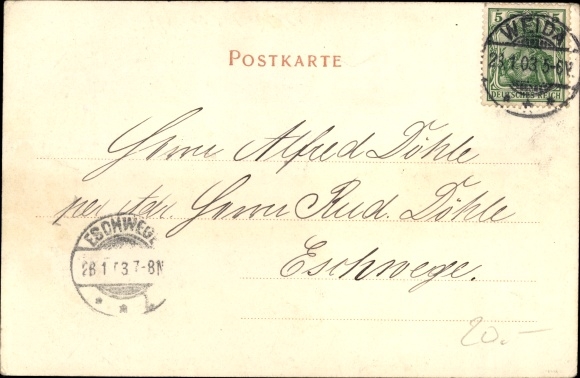 POSTKARTE
5 5
WEIDA
28.1.03 5-6N.
DEUTSCHES REICH
Herrn Alfred Döhle
per Herrn Rud. Döhle
Eschwege.
ESCHWEGE
28.1.03 7-8N
20.-